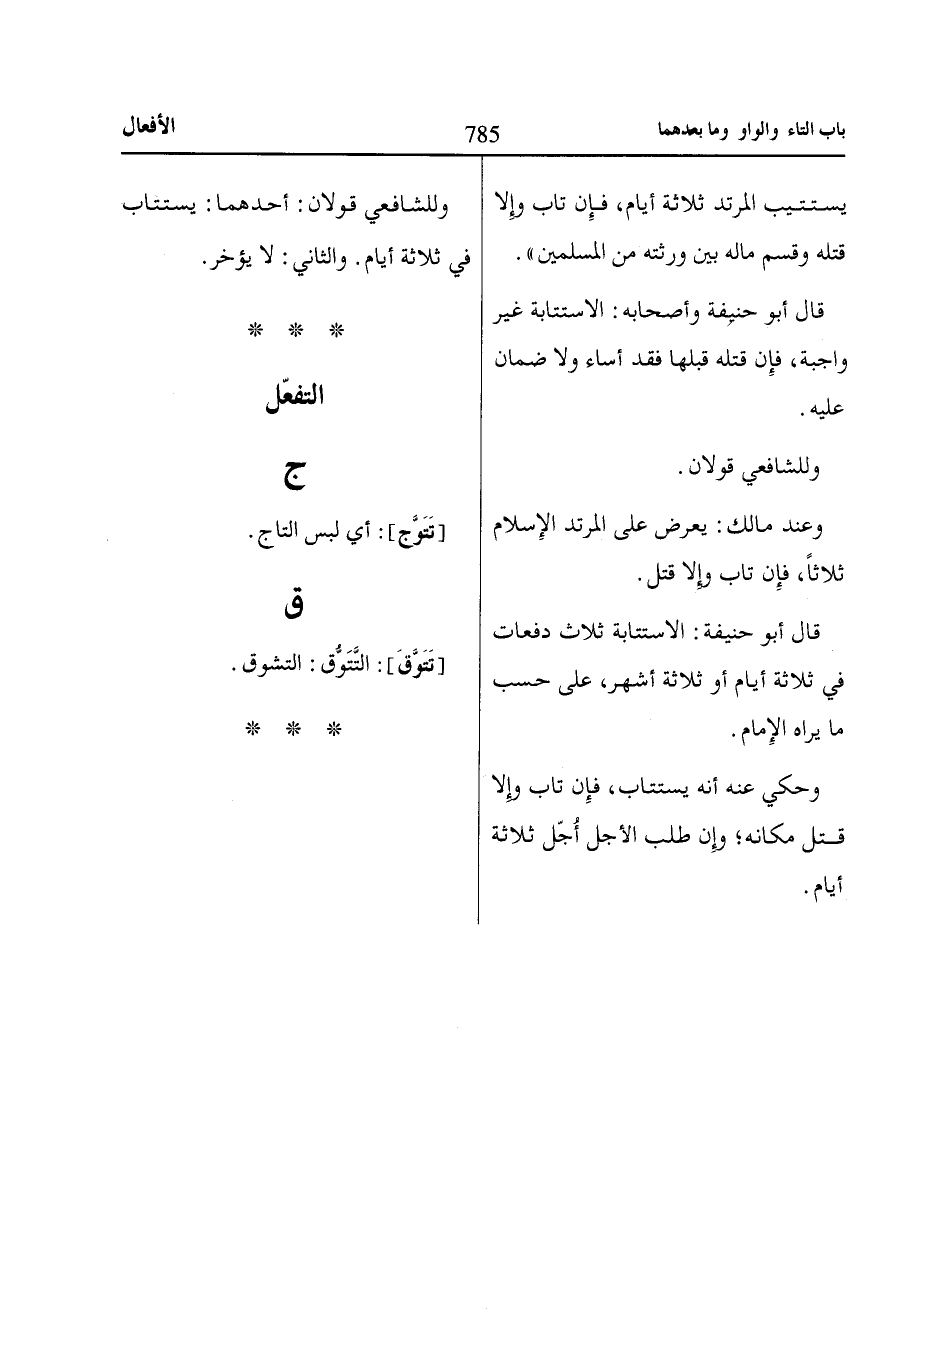 باب التاء والواو وما بعدهما
785
الأفعال
يستتيب المرتد ثلاثة أيام، فإن تاب وإلا
قتله وقسم ماله بين ورثته من المسلمين».
قال أبو حنيفة وأصحابه: الاستتابة غير
واجبة، فإن قتله قبلها فقد أساء ولا ضمان
عليه.
وللشافعي قولان.
وعند مالك: يعرض على المرتد الإسلام
ثلاثاً، فإن تاب وإلا قتل.
قال أبو حنيفة: الاستتابة ثلاث دفعات
في ثلاثة أيام أو ثلاثة أشهر، على حسب
ما يراه الإمام.
وحكي عنه أنه يستتاب، فإن تاب وإلا
قتل مكانه؛ وإن طلب الأجل أُجّل ثلاثة
أيام.
وللشافعي قولان: أحدهما: يستتاب
في ثلاثة أيام. والثاني: لا يؤخر.
* * *
التفعّل
ج
[تَتَوَّج]: أي لبس التاج.
ق
[تَتَوَّقَ]: التَّتَوُّق: التشوق.
* * *